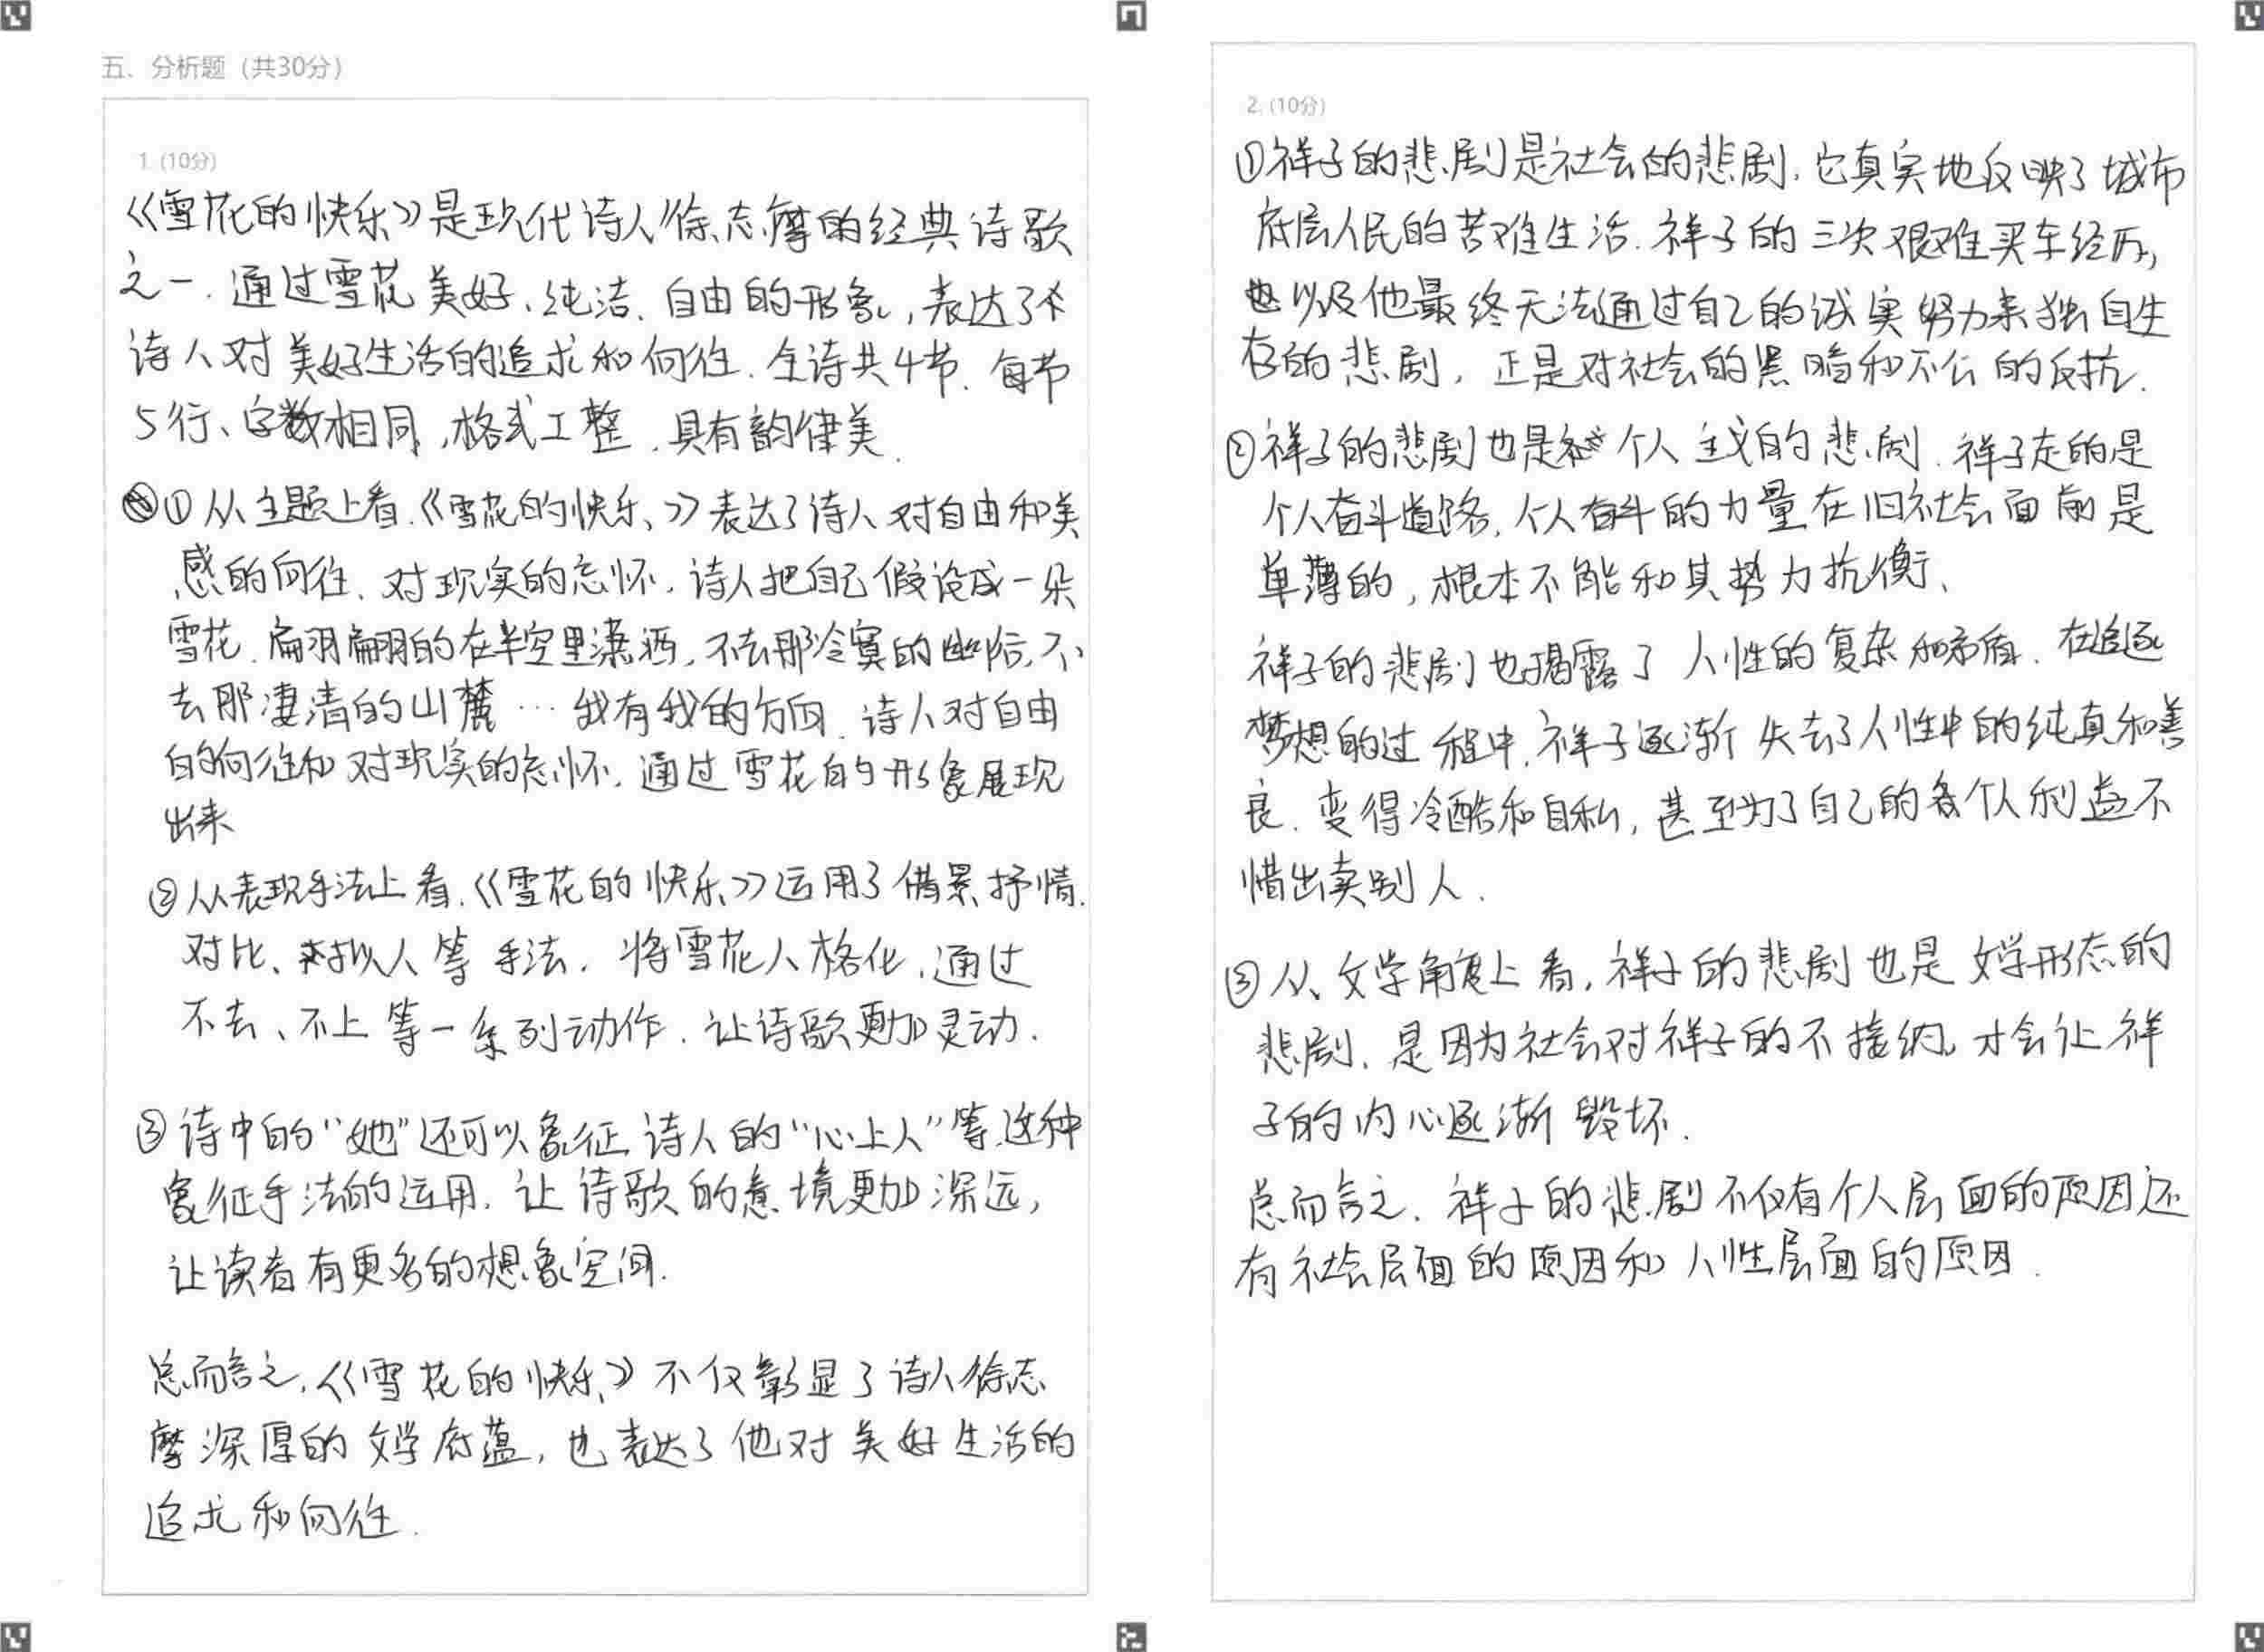 五、分析题（共30分）
1. (10分)
《雪花的快乐》是现代诗人徐志摩的经典诗歌
之一.通过雪花美好、纯洁、自由的形象，表达了
诗人对美好生活的追求和向往.全诗共4节.每节
5行、字数相同,格式工整.具有韵律美.
①从主题上看.《雪花的快乐》表达了诗人对自由和美
感的向往、对现实的忘怀.诗人把自己假设成一朵
雪花.扁羽扁羽的在半空里潇洒,不去那冷寞的幽谷,不
去那凄清的山麓…我有我的方向.诗人对自由
的向往和对现实的忘怀.通过雪花的形象展现
出来
②从表现手法上看.《雪花的快乐》运用了借景抒情.
对比、拟人等手法.将雪花人格化,通过
不去、不上等一系列动作.让诗歌更加灵动.
③诗中的"她"还可以象征诗人的"心上人"等.这种
象征手法的运用.让诗歌的意境更加深远,
让读者有更多的想象空间.
总而言之,《雪花的快乐》不仅彰显了诗人徐志
摩深厚的文学底蕴,也表达了他对美好生活的
追求和向往.
2. (10分)
①祥子的悲剧是社会的悲剧,它真实地反映了城市
底层人民的苦难生活.祥子的三次艰难买车经历,
以及他最终无法通过自己的诚实努力来独自生
存的悲剧,正是对社会的黑暗和不公的反抗.
②祥子的悲剧也是个人主义的悲剧.祥子走的是
个人奋斗道路,个人奋斗的力量在旧社会面前是
单薄的,根本不能和其势力抗衡、
祥子的悲剧也揭露了人性的复杂和矛盾.在追逐
梦想的过程中,祥子逐渐失去了人性中的纯真和善
良.变得冷酷和自私,甚至为了自己的个人利益不
惜出卖别人.
③从文学角度上看,祥子的悲剧也是文学形态的
悲剧.是因为社会对祥子的不接纳,才会让祥
子的内心逐渐毁坏.
总而言之.祥子的悲剧不仅有个人层面的原因还
有社会层面的原因和人性层面的原因.